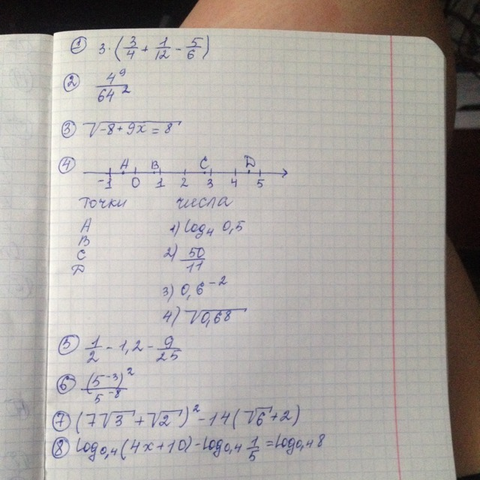 ① 3·(3/4 + 1/12 - 5/6)
② 4⁹/64²
③ √(-8+9x = 8)
④ A B C D
-1 0 1 2 3 4 5
точки числа
A 1) log₄ 0,5
B
C 2) 50/11
D
3) 0,6⁻²
4) √0,68
⑤ 1/2 - 1,2 - 9/25
⑥ (5⁻³)²/5⁻⁸
⑦ (7√3 + √2)² - 14(√6 + 2)
⑧ log₀,₄(4x+10) - log₀,₄ 1/5 = log₀,₄ 8